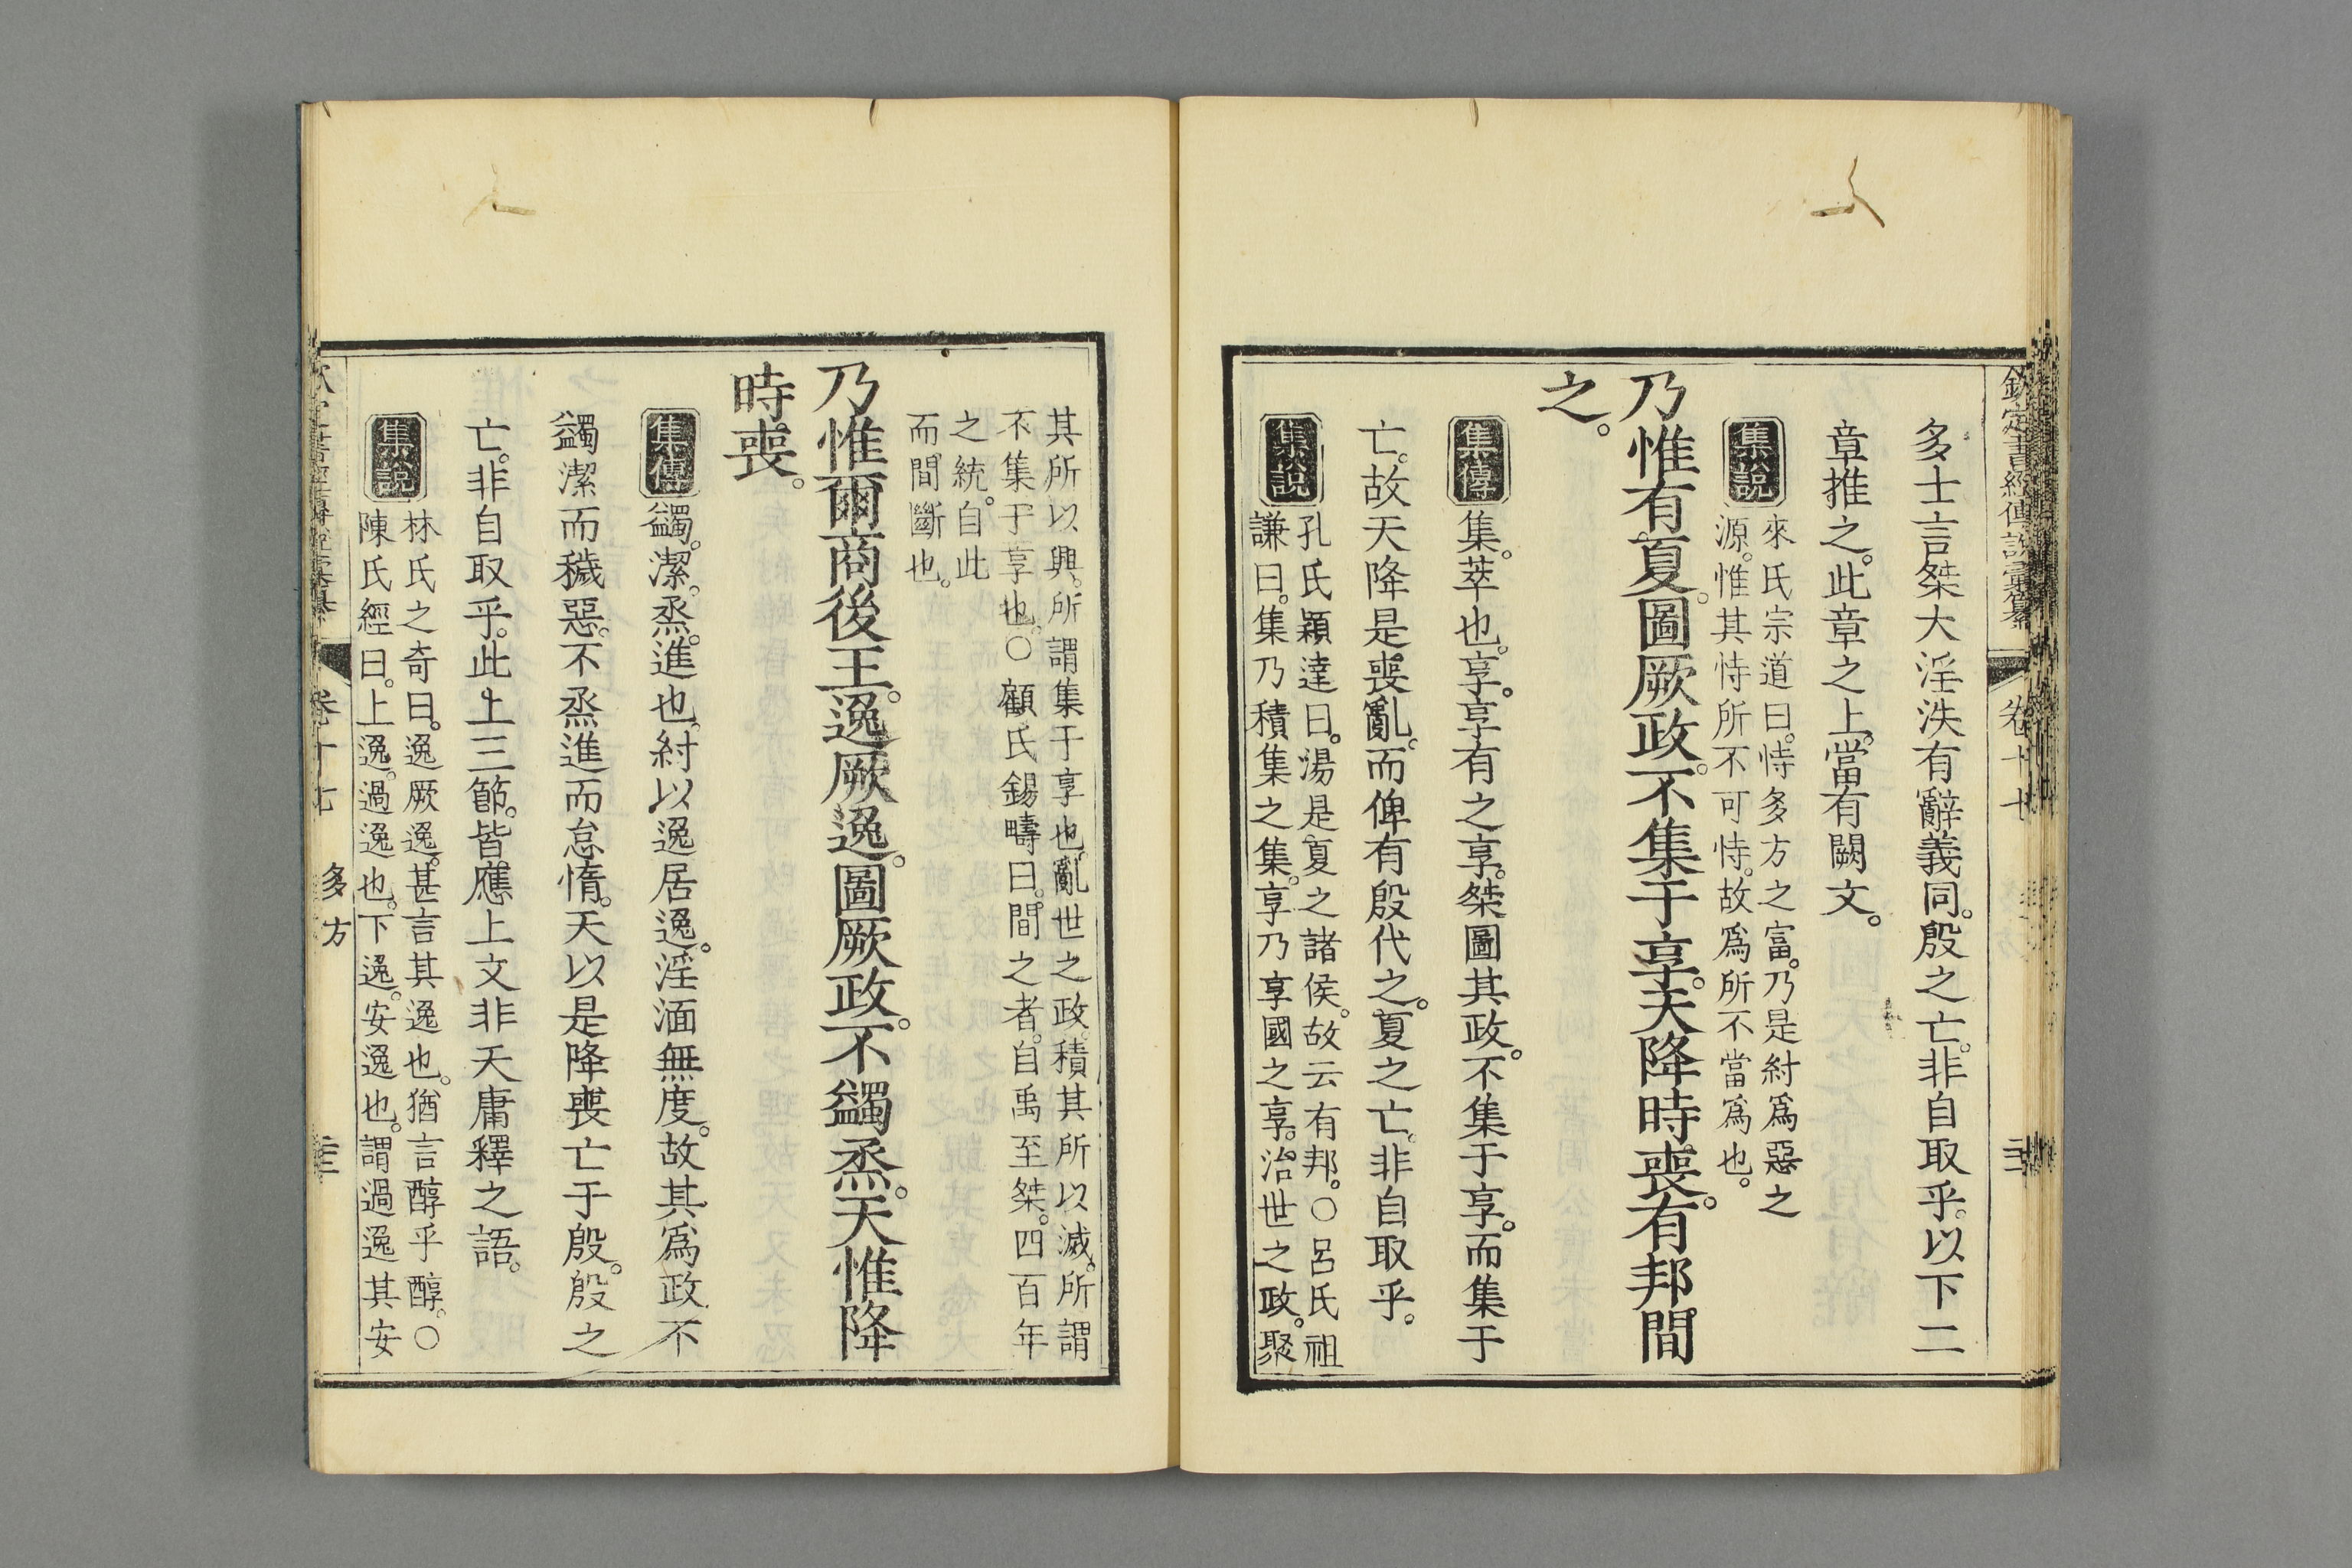 欽定書經傳說彙纂 卷十七
多士言桀大淫泆有辭義同。殷之亡。非自取乎。以下二
章推之。此章之上。當有闕文。
集說
來氏宗道曰。恃多方之富。乃是紂爲惡之
源。惟其恃所不可恃。故爲所不當爲也。
乃惟有夏。圖厥政。不集于享。天降時喪。有邦間
之。
集傳 集。萃也。享。享有之享。桀圖其政。不集于享。而集于
亡。故天降是喪亂。而俾有殷代之。夏之亡。非自取乎。
集說
孔氏穎達曰。湯是夏之諸侯。故云有邦。○呂氏祖
謙曰。集乃積集之集。享乃享國之享。治世之政。聚
其所以興。所謂集于享也。亂世之政。積其所以滅。所謂
不集于享也。○顧氏錫疇曰。間之者。自禹至桀。四百年
之統。自此
而間斷也。
乃惟爾商後王。逸厥逸。圖厥政。不蠲烝。天惟降
時喪。
集傳 蠲。潔。烝。進也。紂以逸居逸。淫湎無度。故其爲政不
蠲潔而穢惡。不烝進而怠惰。天以是降喪亡于殷。殷之
亡。非自取乎。此上三節。皆應上文非天庸釋之語。
集說
林氏之奇曰。逸厥逸。甚言其逸也。猶言醇乎醇。○
陳氏經曰。上逸。過逸也。下逸。安逸也。謂過逸其安
卷十七 多方